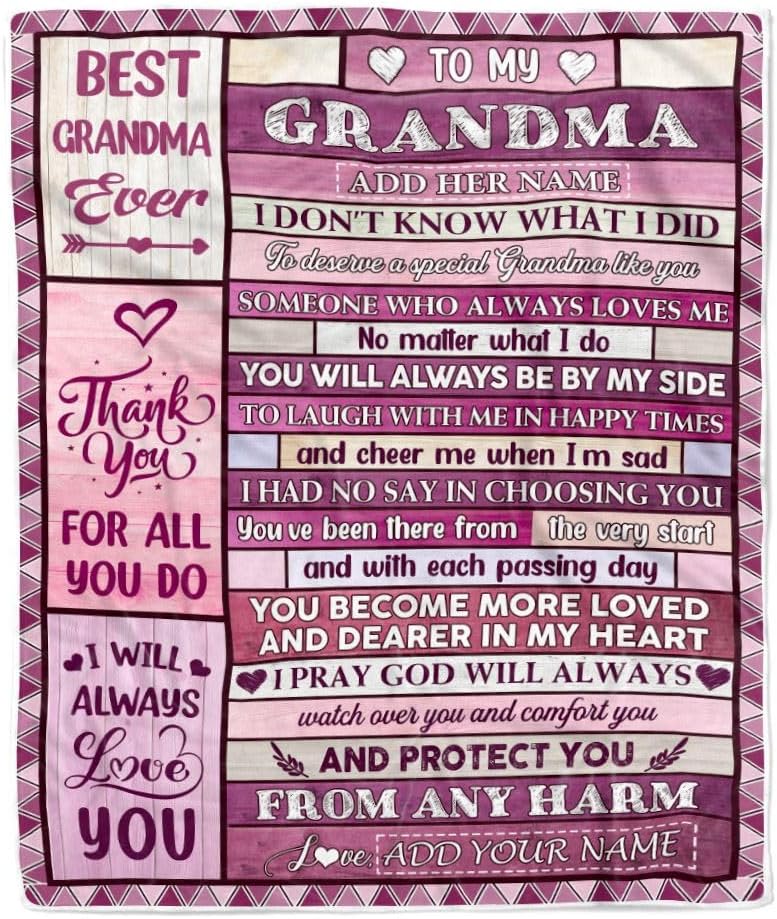 BEST
GRANDMA
Ever
Thank
You
FOR ALL
YOU DO
I WILL
ALWAYS
Love
YOU
TO MY
GRANDMA
ADD HER NAME
I DON'T KNOW WHAT I DID
To deserve a special Grandma like you
SOMEONE WHO ALWAYS LOVES ME
No matter what I do
YOU WILL ALWAYS BE BY MY SIDE
TO LAUGH WITH ME IN HAPPY TIMES
and cheer me when I'm sad
I HAD NO SAY IN CHOOSING YOU
You've been there from the very start
and with each passing day
YOU BECOME MORE LOVED
AND DEARER IN MY HEART
I PRAY GOD WILL ALWAYS
watch over you and comfort you
AND PROTECT YOU
FROM ANY HARM
Love, ADD YOUR NAME